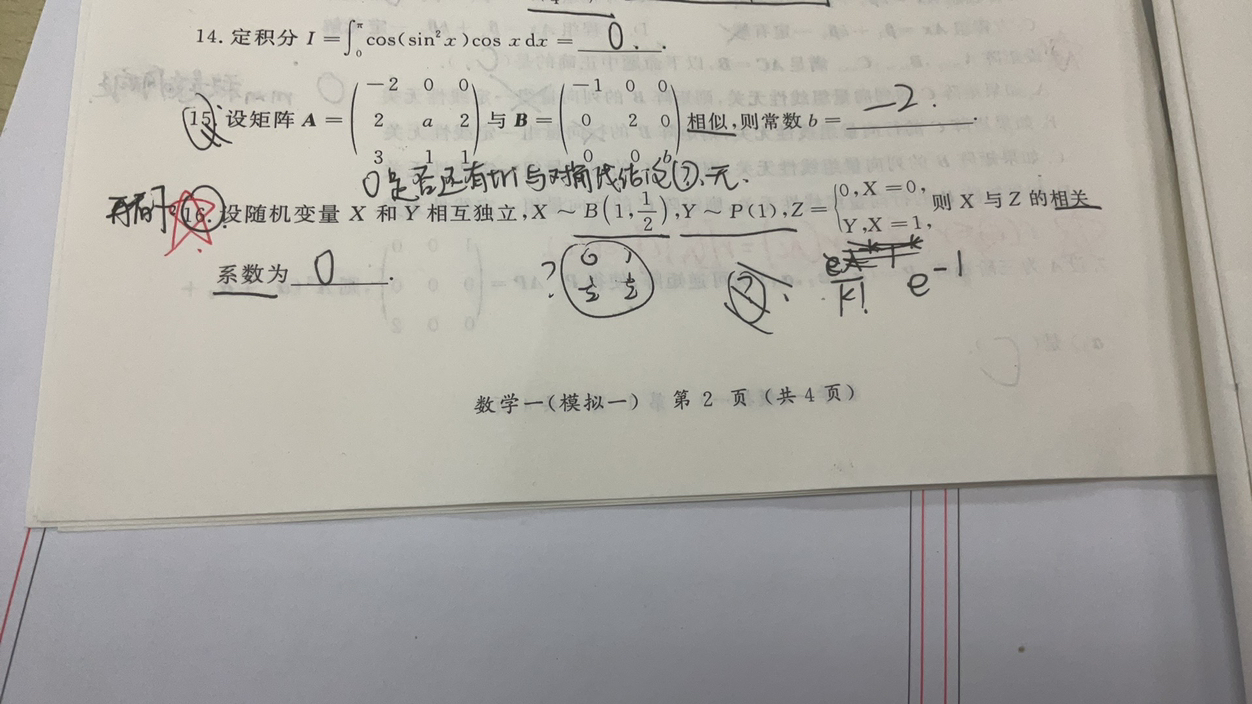 14. 定积分 I=∫₀^π cos(sin²x)cos x dx = 0 .
15. 设矩阵 A = (-2 0 0; 2 a 2; 3 1 1) 与 B = (-1 0 0; 0 2 0; 0 0 b) 相似,则常数 b = -2 .
0是否还有tr 与对角线结论②、无.
16. 设随机变量 X 和 Y 相互独立, X ~ B(1, 1/2), Y ~ P(1), Z = {0, X = 0, Y, X = 1, 则 X 与 Z 的相关
系数为 0 .
? 0 1
1/2 1/2
?
k!
e⁻¹
数学一(模拟一) 第 2 页 (共 4 页)